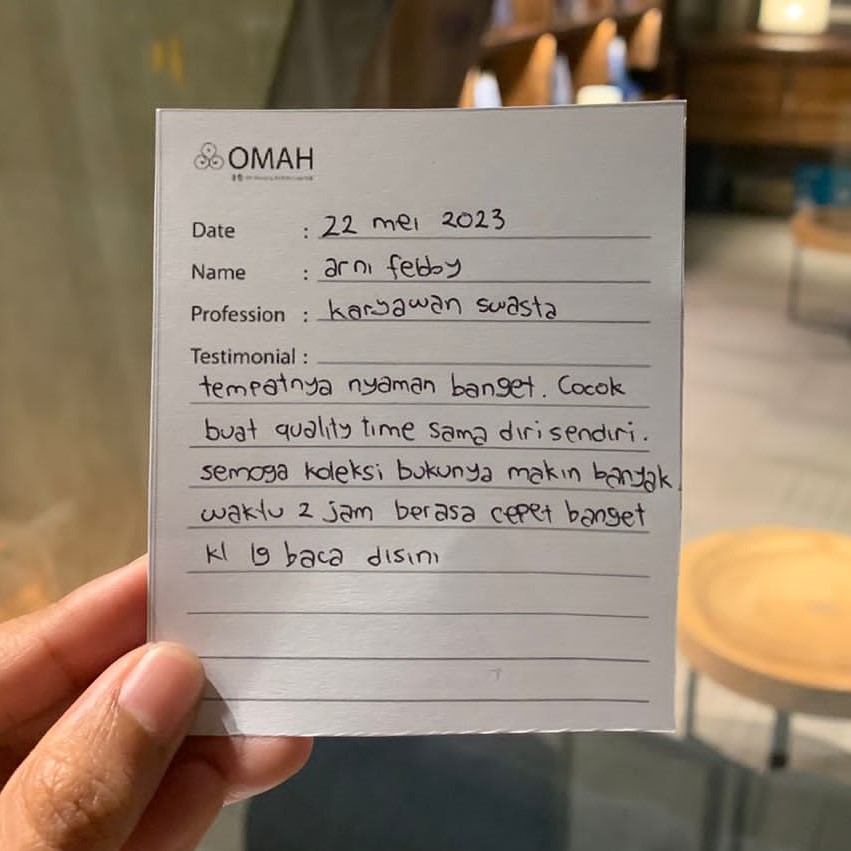 OMAH
Date : 22 mei 2023
Name : arni febby
Profession : karyawan swasta
Testimonial :
tempatnya nyaman banget. Cocok
buat quality time sama diri sendiri.
semoga koleksi bukunya makin banyak.
waktu 2 jam berasa cepet banget
kl lg baca disini